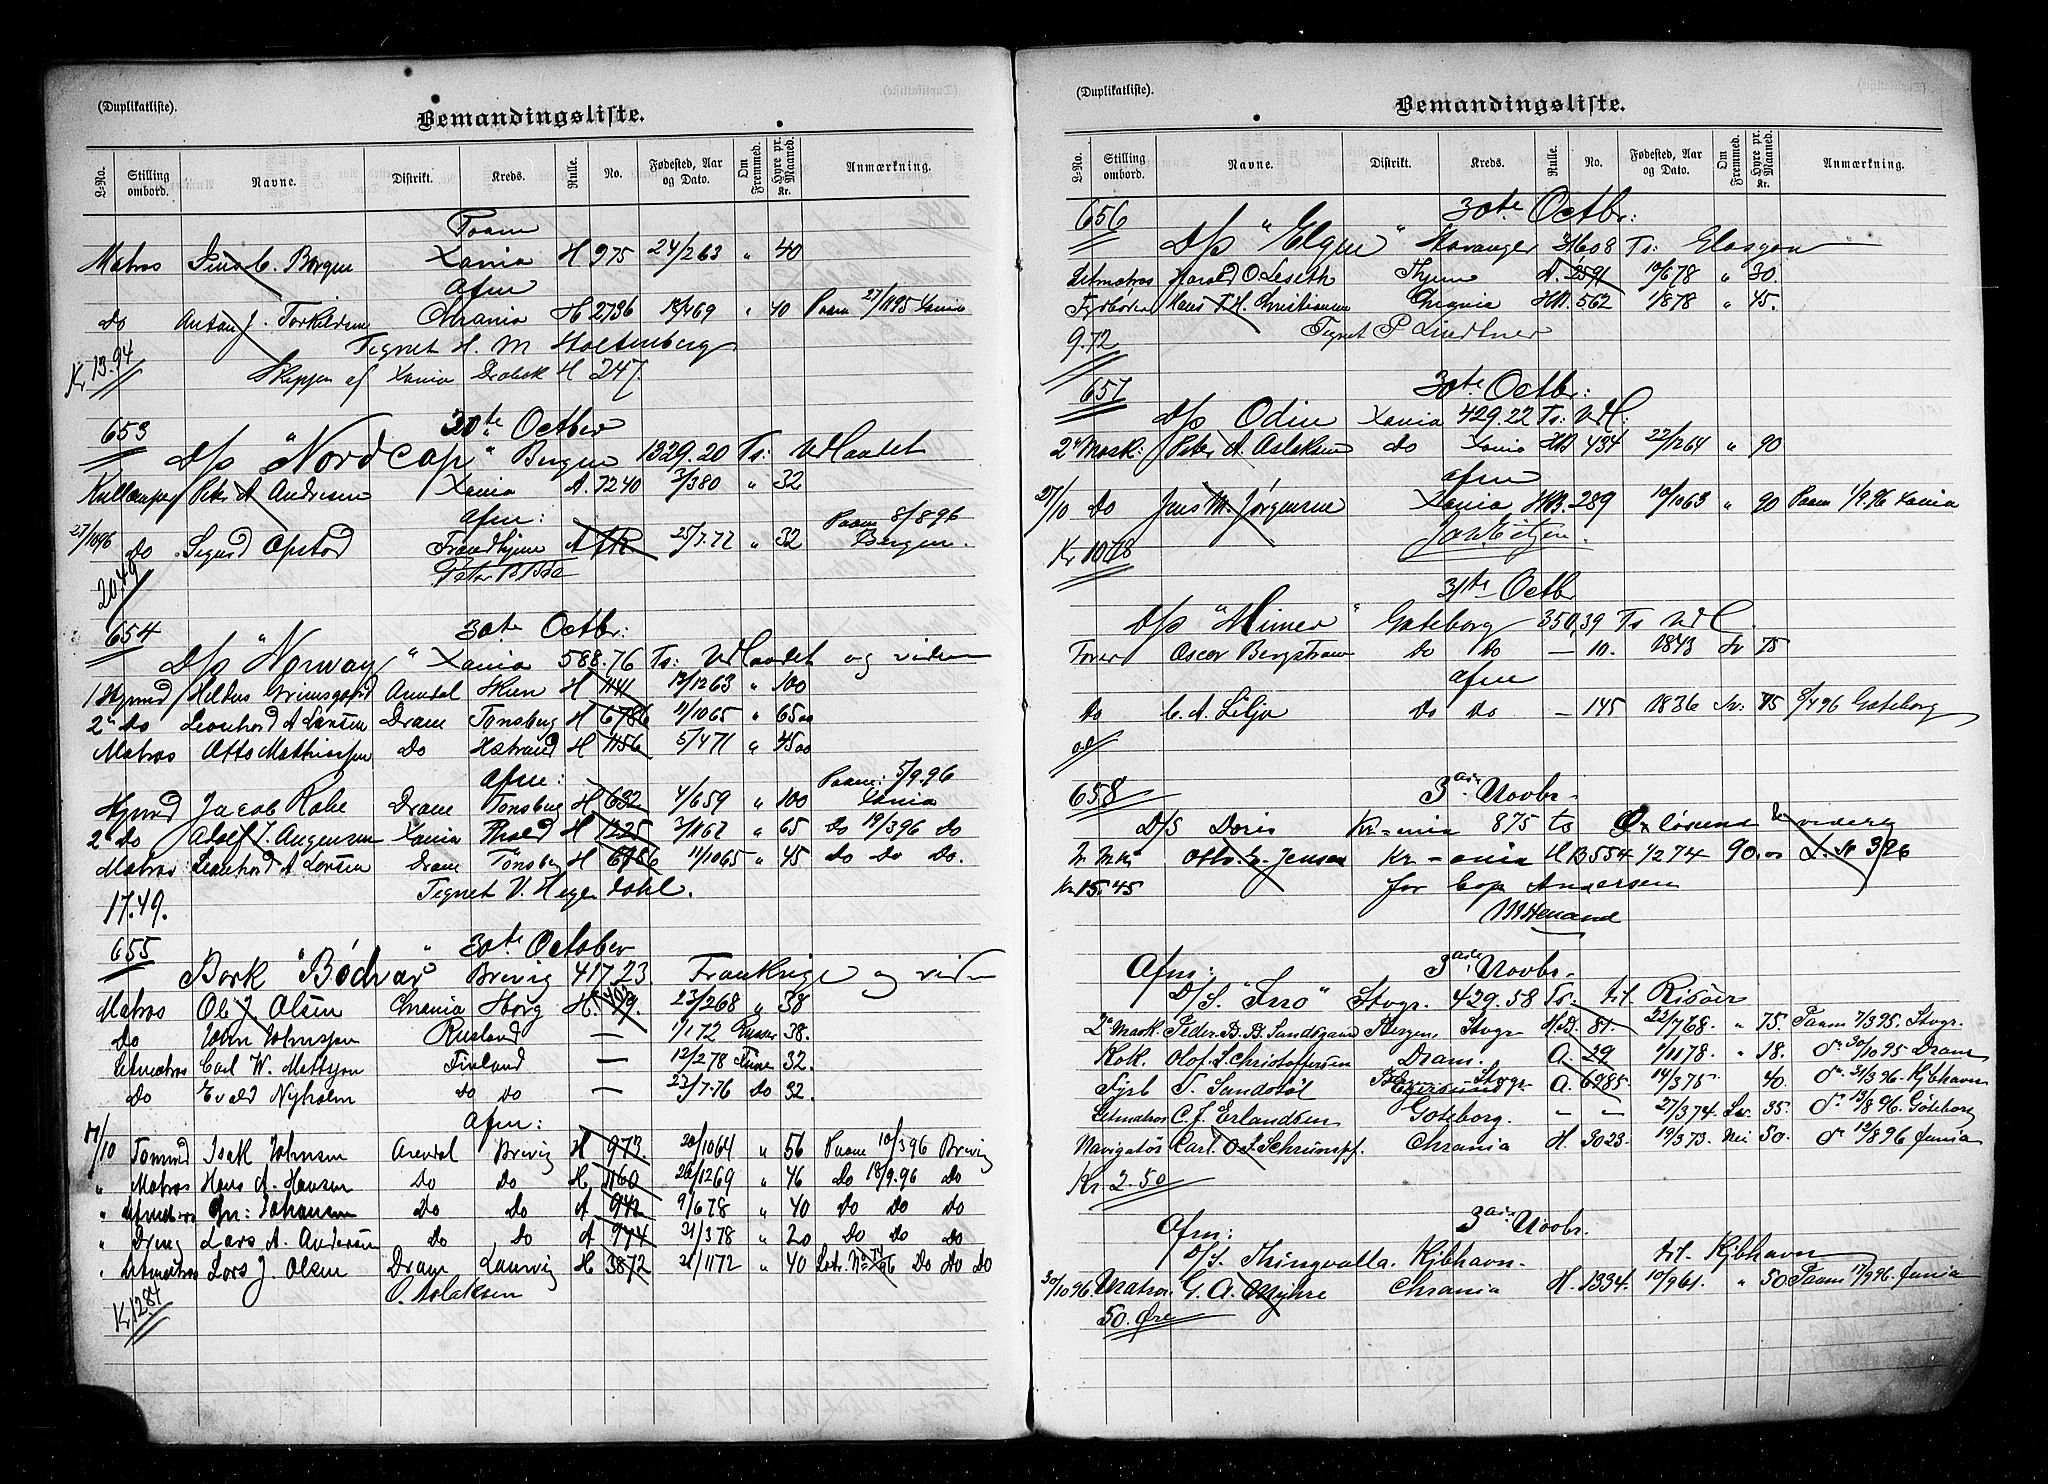 (Duplikatliste).
Bemandingsliste.
L-No. Stilling ombord. Navne. Distrikt. Kreds. Rulle. No. Fødested, Aar og Dato. Om Fremmed. Hyre pr. Maaned. Kr. Anmærkning.
Paam
Matros Borgen Xania H 975 24/2 63 " 40
Afm
Do Anton J. Torkildsen Chrania H 2736 69 " 40 Paam 27/11 95 Xania
Tegnet H. M Holtenberg
Kr 13.94
Skippen af Xania Drobak H 247.
653 30te Octber
D/s "Nordcap" Bergen 1329.20 Ts: Udlandet
Kullemper Peter A Andresen Xania A. 7240 3/3 80 " 32
Afm:
27/10 96 Do Sigurd Opstod Trondhjem A 25/7.72 " 32 Paam 8/8 96 Bergen.
20.49 Peter B Bøe
654 30te Octbr:
D/s "Norway" Xania 588.76 Ts: Udlandet og videre
1 Styrmd Heldus Grimsgaard Arendal Skien H 1141 12/12 63 " 100
2n Do Leonhard A Larsen Dram Tønsberg H 6786 11/10 65 " 65 00
Matros Otto Mathiassen Do Hstrand H 1156 5/4 71 " 45 00
Afm:
Styrmd Jacob Robe Dram Tønsberg H 632 4/6 59 " 100 Paam: 5/9.96 Xania
2n Do Adolf J. Augensen Xania H 1225 3/11 62 " 65 Do 19/3 96 Do
Matros Leonhard A Larsen Dram Tönsbg H 6786 11/10 65 " 45 Do Do Do.
Tegnet V. Hegerdahl.
17.49.
655 30te October
Bark "Bödvar" Brevig 417,23 Frankrige og vidre
Matros Ole J. Olsen Chrania Horg H. 23/2 68 " 38
Do John Johnsson Rusland — 1/1 72 Russer 38.
Letmatros Carl W. Mattsson Finland — 12/2 78 Finne 32.
Do Evald Nyholm Do Do — 23/7.76 Do 32.
Afm:
/10 Tømmd Isak Johnsen Arendal Brevig H 973. 20/10 64 " 56 Paam 10/3 96 Brevig
" Matros Hans A. Hansen Do Do H. 1160 26/12 69 " 46 Do 18/9.96 Do
" Letmatros Johansen Do Do A 942 9/6 78 " 40 Do Do Do
" Dreng Lars A. Andersen Do Do A 974 31/3 78 " 20 Do Do Do
" Letmatros Lars J. Olsen Dram Laurvig H 3872 21/11 72 " 40 Do Do Do
O. Aslaksen
Kr 12.84
(Duplikatliste).
Bemandingsliste.
L-No. Stilling ombord. Navne. Distrikt. Kreds. Rulle. No. Fødested, Aar og Dato. Om Fremmed. Hyre pr. Maaned. Kr. Anmærkning.
656 30te Octbr:
D/s "Elgen" Stavanger 316.08 Ts: Glasgow
Letmatros Harald O. Leseth Thjem A. 2591 10/6 78 " 30.
Fyrbøder Hans T. H. Christiansen Chrania HB. 562 1/8 78 " 45.
Tegnet P Lindtner
9.72
657 30te Octbr:
D/s Odin Xania 429.22 Ts: Udl:
2n Mask: Peter A. Aslaksen Do Xania HB 434 22/12 64 " 90
Afm
27/10 Do Jens M. Jørgensen Xania HB. 289 10/10 63 " 90 Paam 1/9.96 Xania
Kr 10.78
31te Octbr
D/s "Mimer" Gøteborg 350,39 Ts Udl.
Fører Oscar Bergstrøm Do Do — 10. 1843 Sv 75
Afm
Do C. A. Lilja Do Do — 145 1836 Sv: 75 8/4 96 Gøteborg
658 3die Novbr.
D/S Doris Kr-ania 875 ts videre
Otto G. Jensen Kr-ania HB 554 1/2 74 90.00 L. N 3/96
Kr 15.45 for Cap Andersen
Afm: 3die Novbr.
D/S. "Frro" Stvgr. 429.58 Ts. til Risøer
2n Mask. Peder B. B. Sandsgaard Bergen. Stvgr HB. 81. 22/7 68. " 75. Paam 7/3 95. Stvgr.
Kok. Olof L. Christoffersen Dram. A. 29 1/11 78. " 18. do 30/10 95 Dram
Fyrb T. Sandstöl Stvgr. A. 6985. 14/3 75. 40. do 31/3 96. Kjbhavn
Letmatros C. J. Erlandsen Göteborg. — — 27/3 74. Sv. 35. do 13/8 96. Göteborg
Navigatør Carl. O. A Schrumpf. Chrania H. 3023. 19/3 73. Nei 50. do 12/8 96
Kr 2.50
Afm: 3die Novbr.
D/S. Thingvalla. Kjbhavn. til Kjbhavn
30/10 96. Matros. G. A. Myhre Chrania H. 1334. 10/9 61. " 50 Paam 17/9 96.
50. Øre